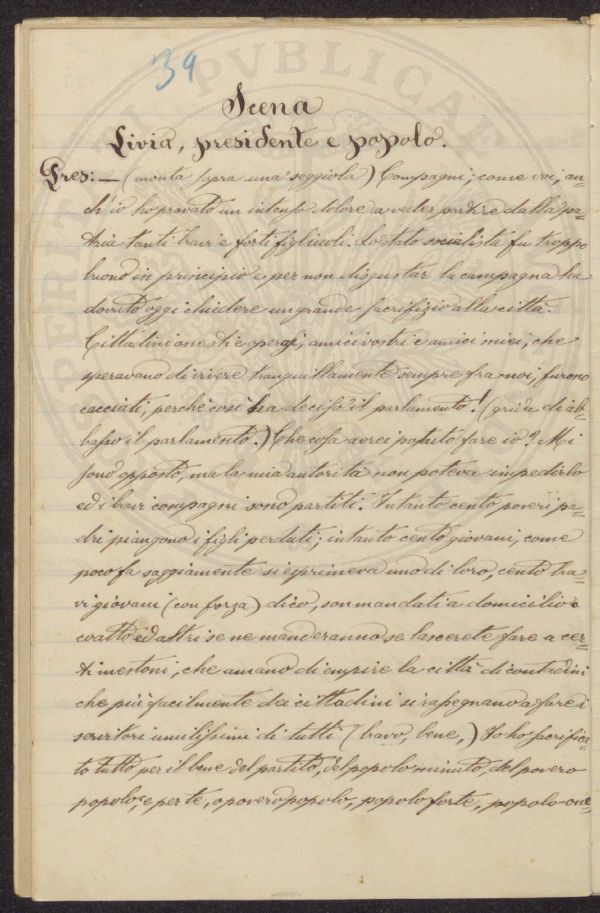 39
Scena
Livia, presidente e popolo.
Pres: — (monta sopra una seggiola) Compagni, come voi, an=
ch'io ho provato un intenso dolore a veder partire dalla pa=
tria tanti bravi e forti figliuoli. Lo stato socialista fu troppo
buono in principio e per non disgustar la campagna ha
dovuto oggi chiedere un grande sacrifizio alla città.
Cittadini onesti e operai, amici vostri e amici miei, che
speravano di vivere tranquillamente sempre fra noi, furono
cacciati, perchè così ha deciso il parlamento! (grida di ab=
basso il parlamento.) Che cosa avrei potuto fare io? Mi
sono opposto, ma la mia autorità non poteva impedirlo
ed i bravi compagni sono partiti. Intanto cento poveri pa=
dri piangono i figli perduti; intanto cento giovani, come
poco fa saggiamente si esprimeva uno di loro, cento bra=
vi giovani (con forza) dico, son mandati a domicilio
coatto ed altri se ne manderanno se lascerete fare a cer=
ti mestoni, che amano di empire la città di contadini
che più facilmente dei cittadini si rassegnano a fare i
servitori umilissimi di tutti (bravo, bene,) Io ho sacrifica=
to tutto per il bene del partito, del popolo minuto, del povero
popolo, e per te, o povero popolo, popolo forte, popolo one=